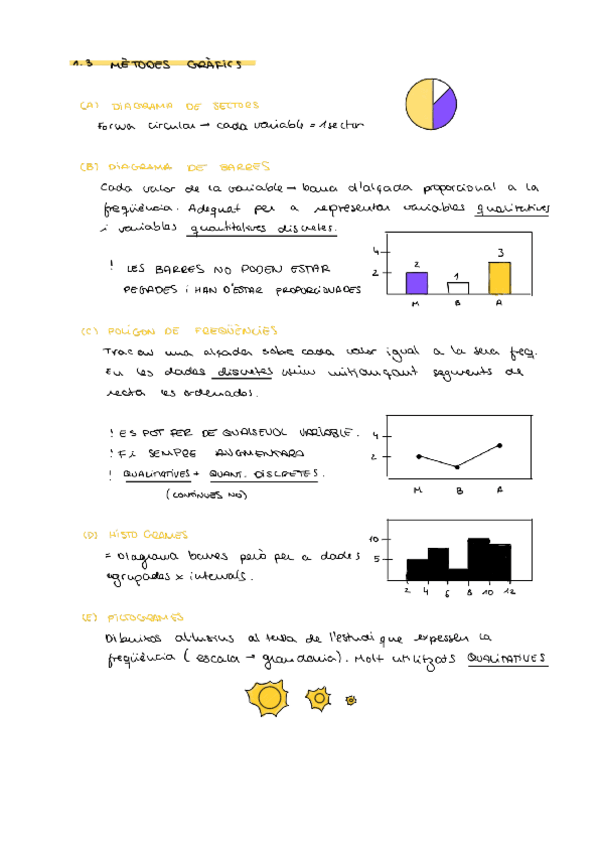 1.3 MÈTODES GRÀFICS
(A) DIAGRAMA DE SECTORS
Forma circular → cada variable = 1 sector
(B) DIAGRAMA DE BARRES
Cada valor de la variable → barra d'alçada proporcional a la
freqüència. Adequat per a representar variables qualitatives
i variables quantitatives discretes.
! LES BARRES NO PODEN ESTAR
PEGADES i HAN D'ESTAR PROPORCIONADES
4
2
2
1
3
M B A
(C) POLÍGON DE FREQÜÈNCIES
Tracem una alçada sobre cada valor igual a la seva freq.
En les dades discretes unim mitjançant segments de
recta les ordenades.
! ES POT FER DE QUALSEVOL VARIABLE.
! F.i SEMPRE AUGMENTARÀ
! QUALITATIVES + QUANT. DISCRETES.
(CONTÍNUES NO)
4
2
M B A
(D) HISTOGRAMES
= Diagrama barres però per a dades
agrupades x intervals.
10
5
2 4 6 8 10 12
(E) PICTOGRAMES
Dibuixos al·lusius al tema de l'estudi que expressen la
freqüència (escala → grandària). Molt utilitzats QUALITATIVES